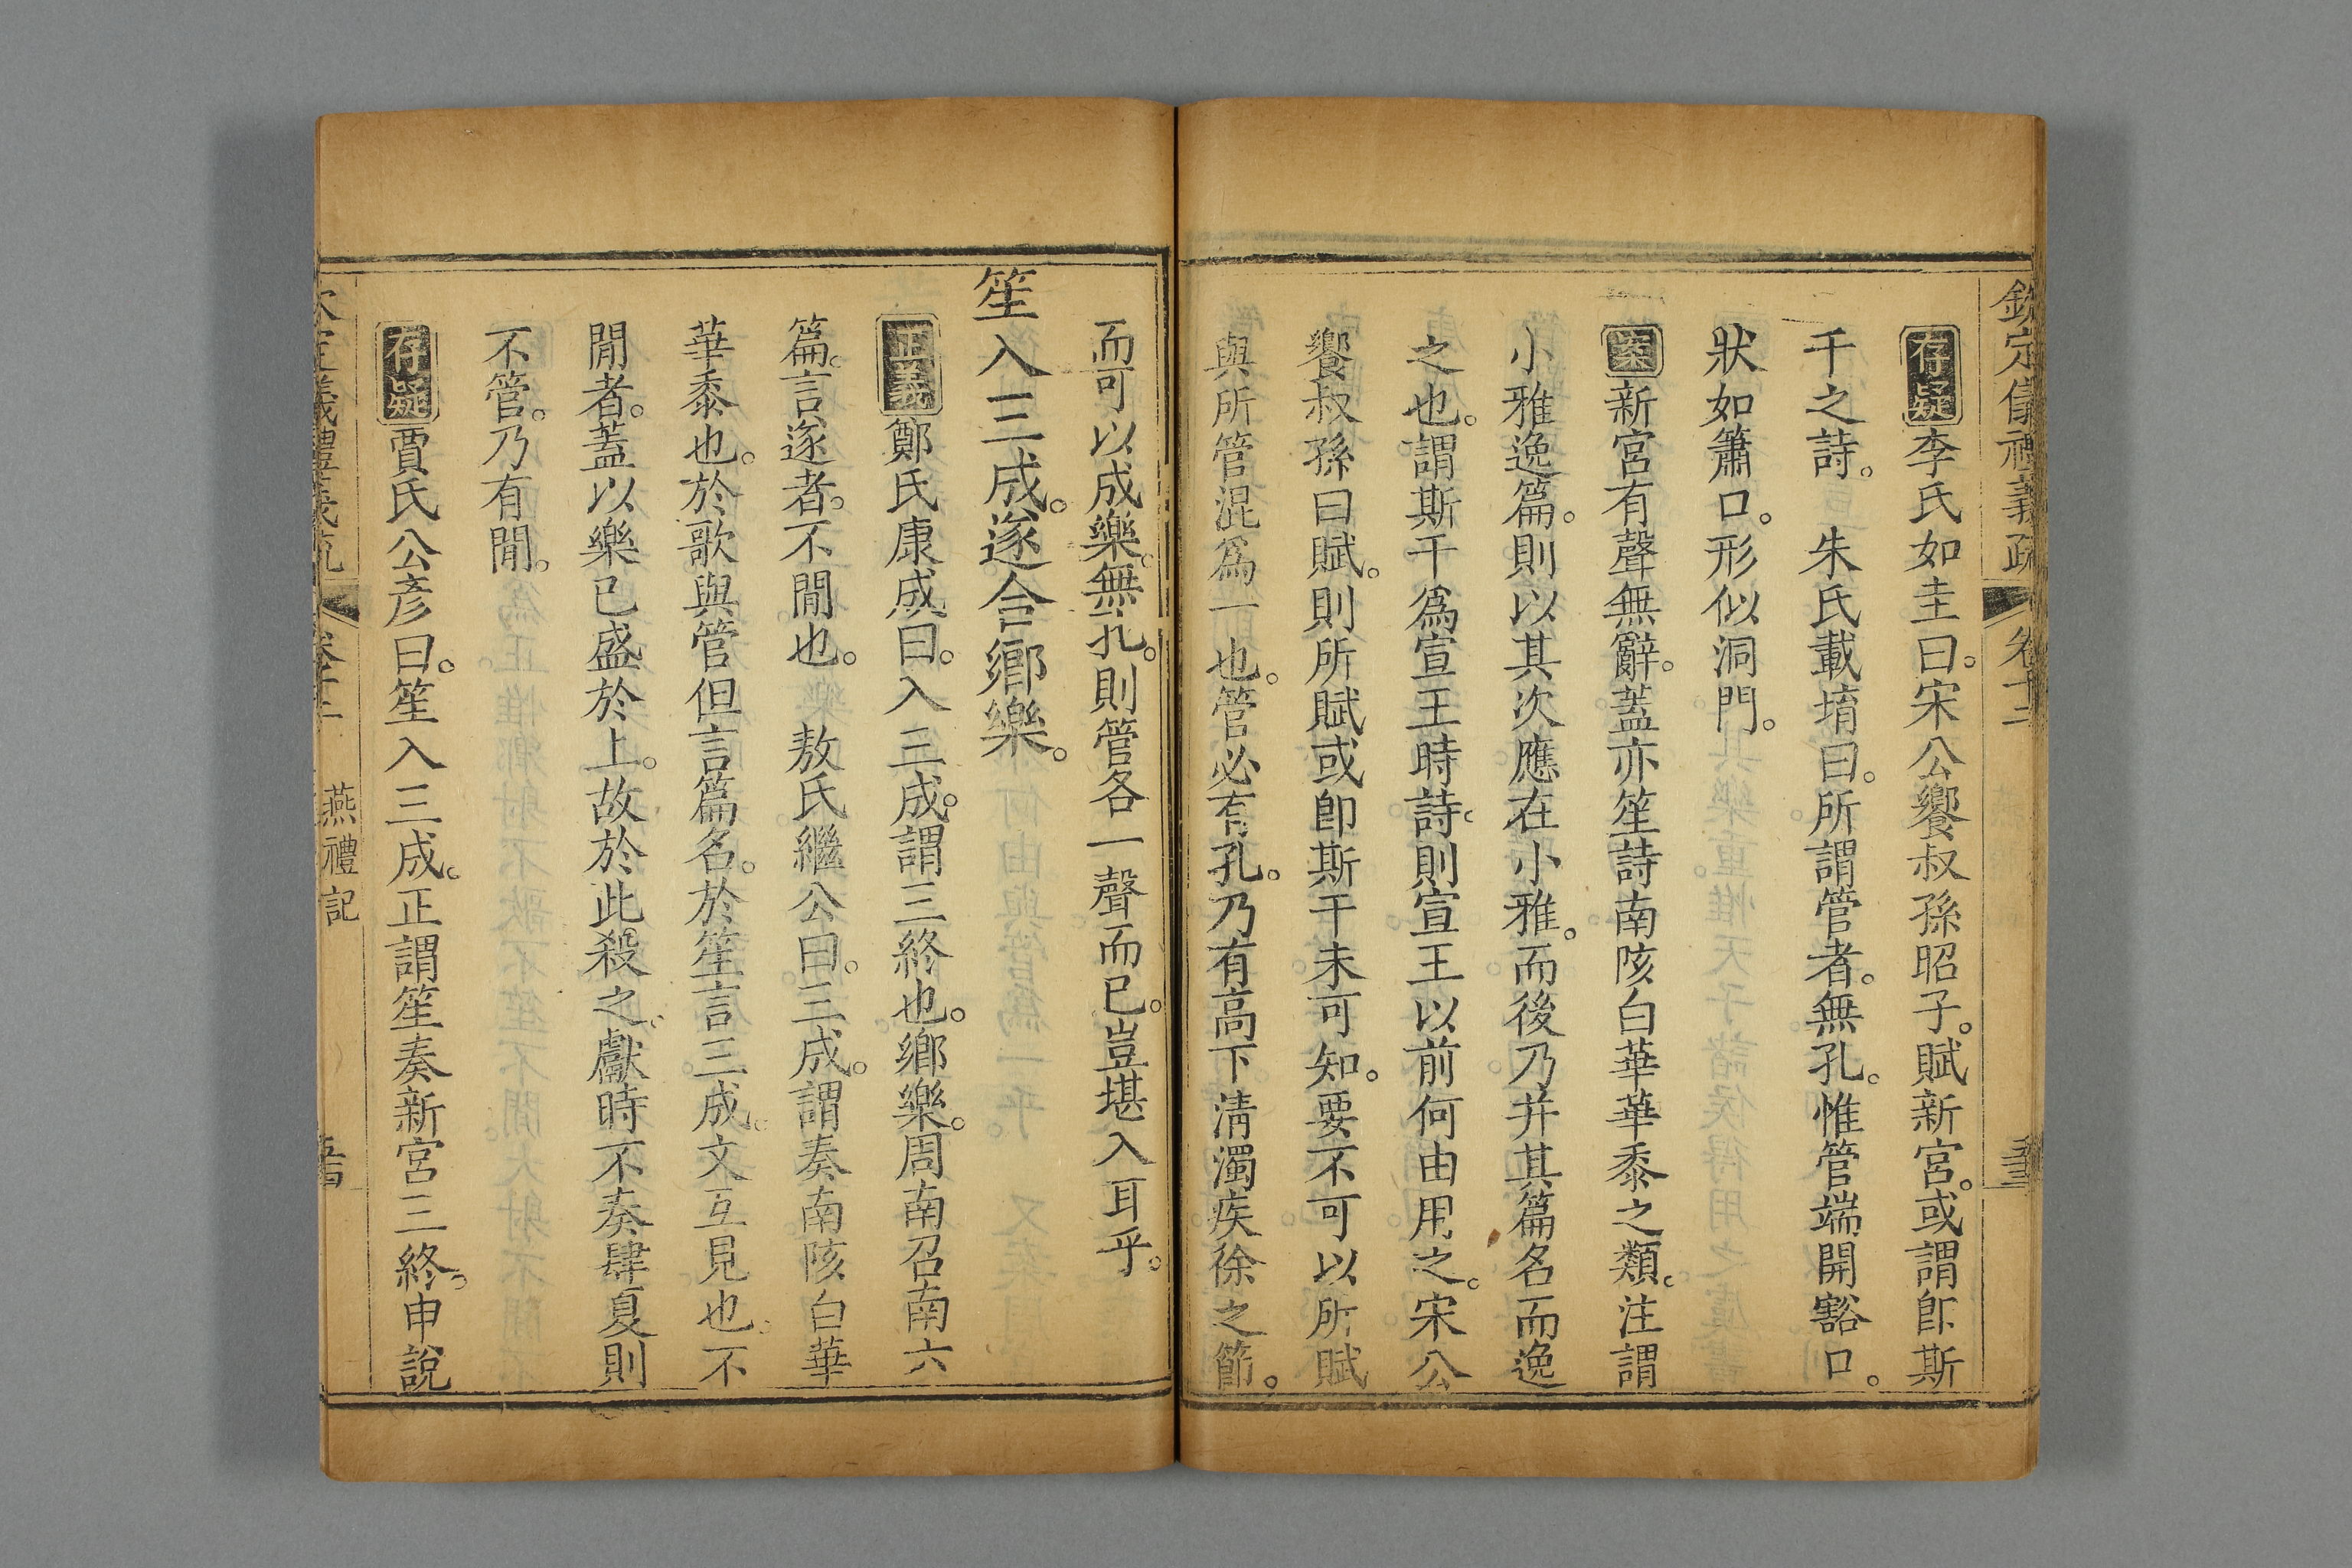 欽定儀禮義疏 卷十二
存疑李氏如圭曰。宋公饗叔孫昭子。賦新宮。或謂卽斯
干之詩。 朱氏載堉曰。所謂管者。無孔。惟管端開豁口。
狀如簫口。形似洞門。
案新宮有聲無辭。蓋亦笙詩南陔白華華黍之類。注謂
小雅逸篇。則以其次應在小雅。而後乃并其篇名而逸
之也。謂斯干爲宣王時詩。則宣王以前何由用之。宋公
饗叔孫曰賦。則所賦或卽斯干未可知。要不可以所賦
與所管混爲一也。管必有孔。乃有高下淸濁疾徐之節。
而可以成樂。無孔。則管各一聲而已。豈堪入耳乎。
笙入三成。遂合鄉樂。
正義鄭氏康成曰。入三成。謂三終也。鄉樂。周南召南六
篇。言遂者。不閒也。 敖氏繼公曰。三成。謂奏南陔白華
華黍也。於歌與管但言篇名。於笙言三成。文互見也。不
閒者。蓋以樂已盛於上。故於此殺之。獻時不奏肆夏則
不管。乃有閒。
存疑賈氏公彥曰。笙入三成。正謂笙奏新宮三終。申說
欽定儀禮義疏 卷十二 燕禮記